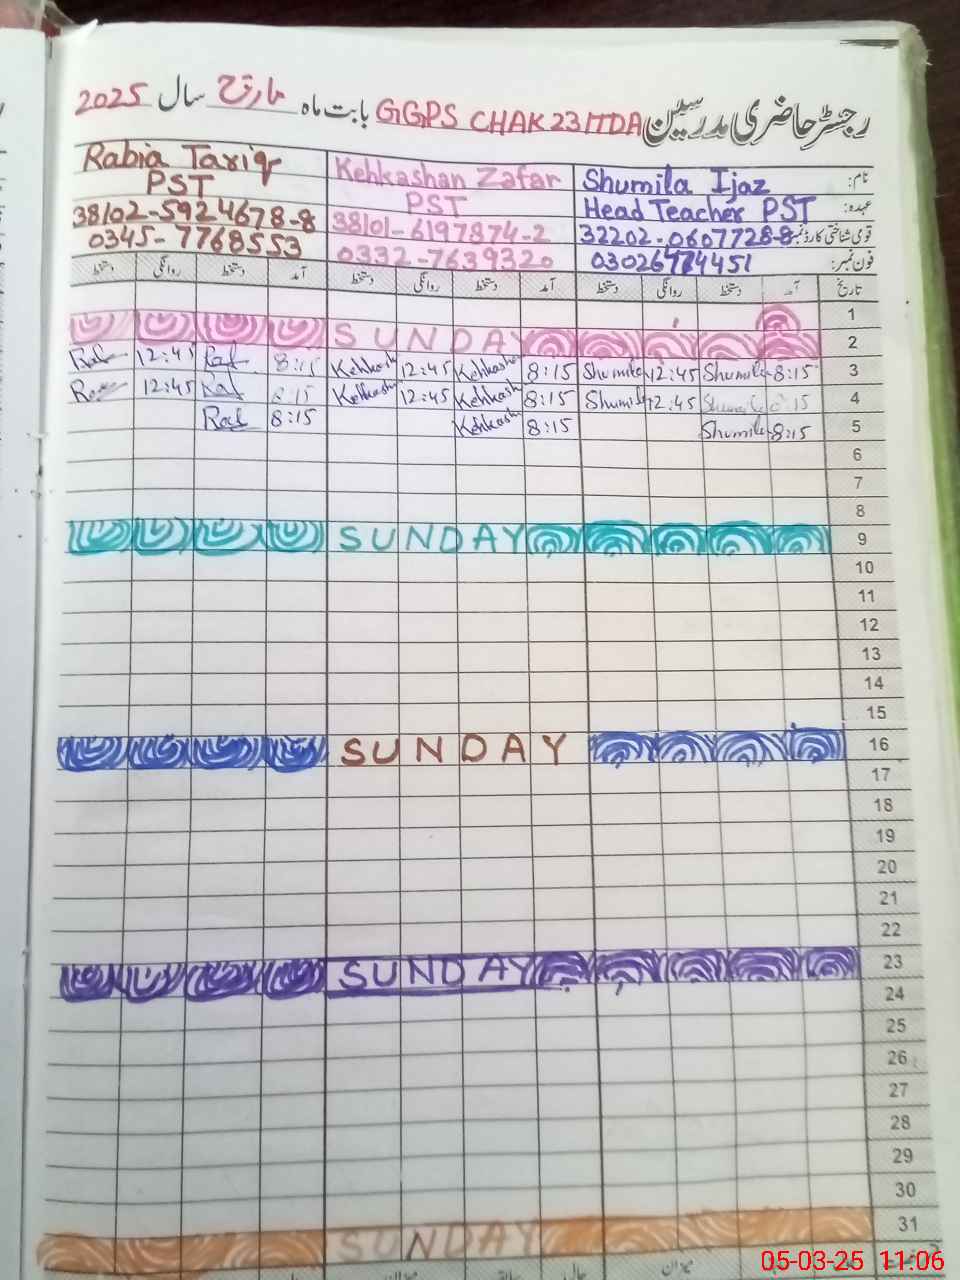 رجسٹر حاضری مدرسین GGPS CHAK 231TDA بابت ماہ مارچ سال 2025
نام: Shumila Ijaz Kehkashan Zafar Rabia Tariq
عہدہ: Head Teacher PST PST PST
قومی شناختی کارڈ نمبر 32202-0607728-8 38101-6197874-2 38102-5924678-8
فون نمبر: 0332-7639320 0345-7768553
تاریخ آمد دستخط روانگی دستخط آمد دستخط روانگی دستخط آمد دستخط روانگی دستخط
1
2 SUNDAY
3 8:15 Shumila 12:45 Shumila 8:15 Kehkash 12:45 Kehkash 8:15 12:45
4 8:15 Shumila 12:45 Shumila 8:15 Kehkash 12:45 Kehkash 8:15 12:45
5 8:15 Shumila 8:15 Kehkash 8:15
6
7
8
9 SUNDAY
10
11
12
13
14
15
16 SUNDAY
17
18
19
20
21
22
23 SUNDAY
24
25
26
27
28
29
30
31 SUNDAY
05-03-25 11:06